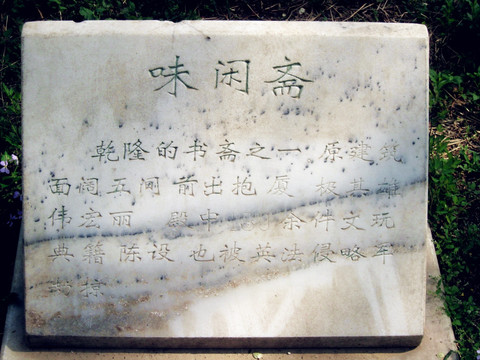 味闲斋
乾隆的书斋之一 原建筑
面阔五间 前出抱厦 极其雄
伟宏丽 殿中 余件文玩
典籍 陈设 也被英法侵略军
掠